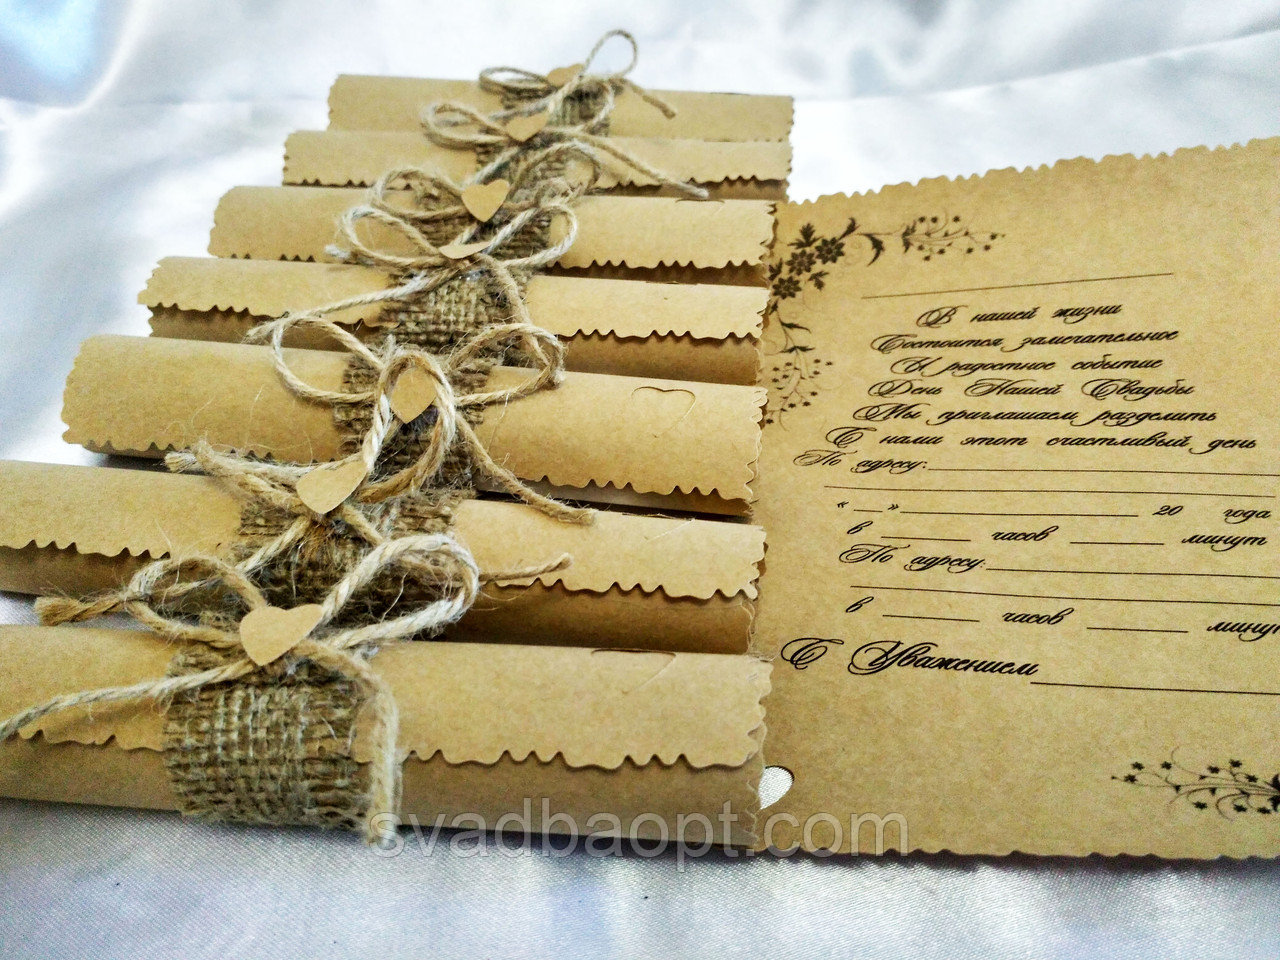 В нашей жизни
Состоится замечательное
И радостное событие
День Нашей Свадьбы
Мы приглашаем разделить
С нами этот счастливый день
По адресу:
« » 20 года
в часов минут
По адресу:
в часов минут
С Уважением
svadbaopt.com